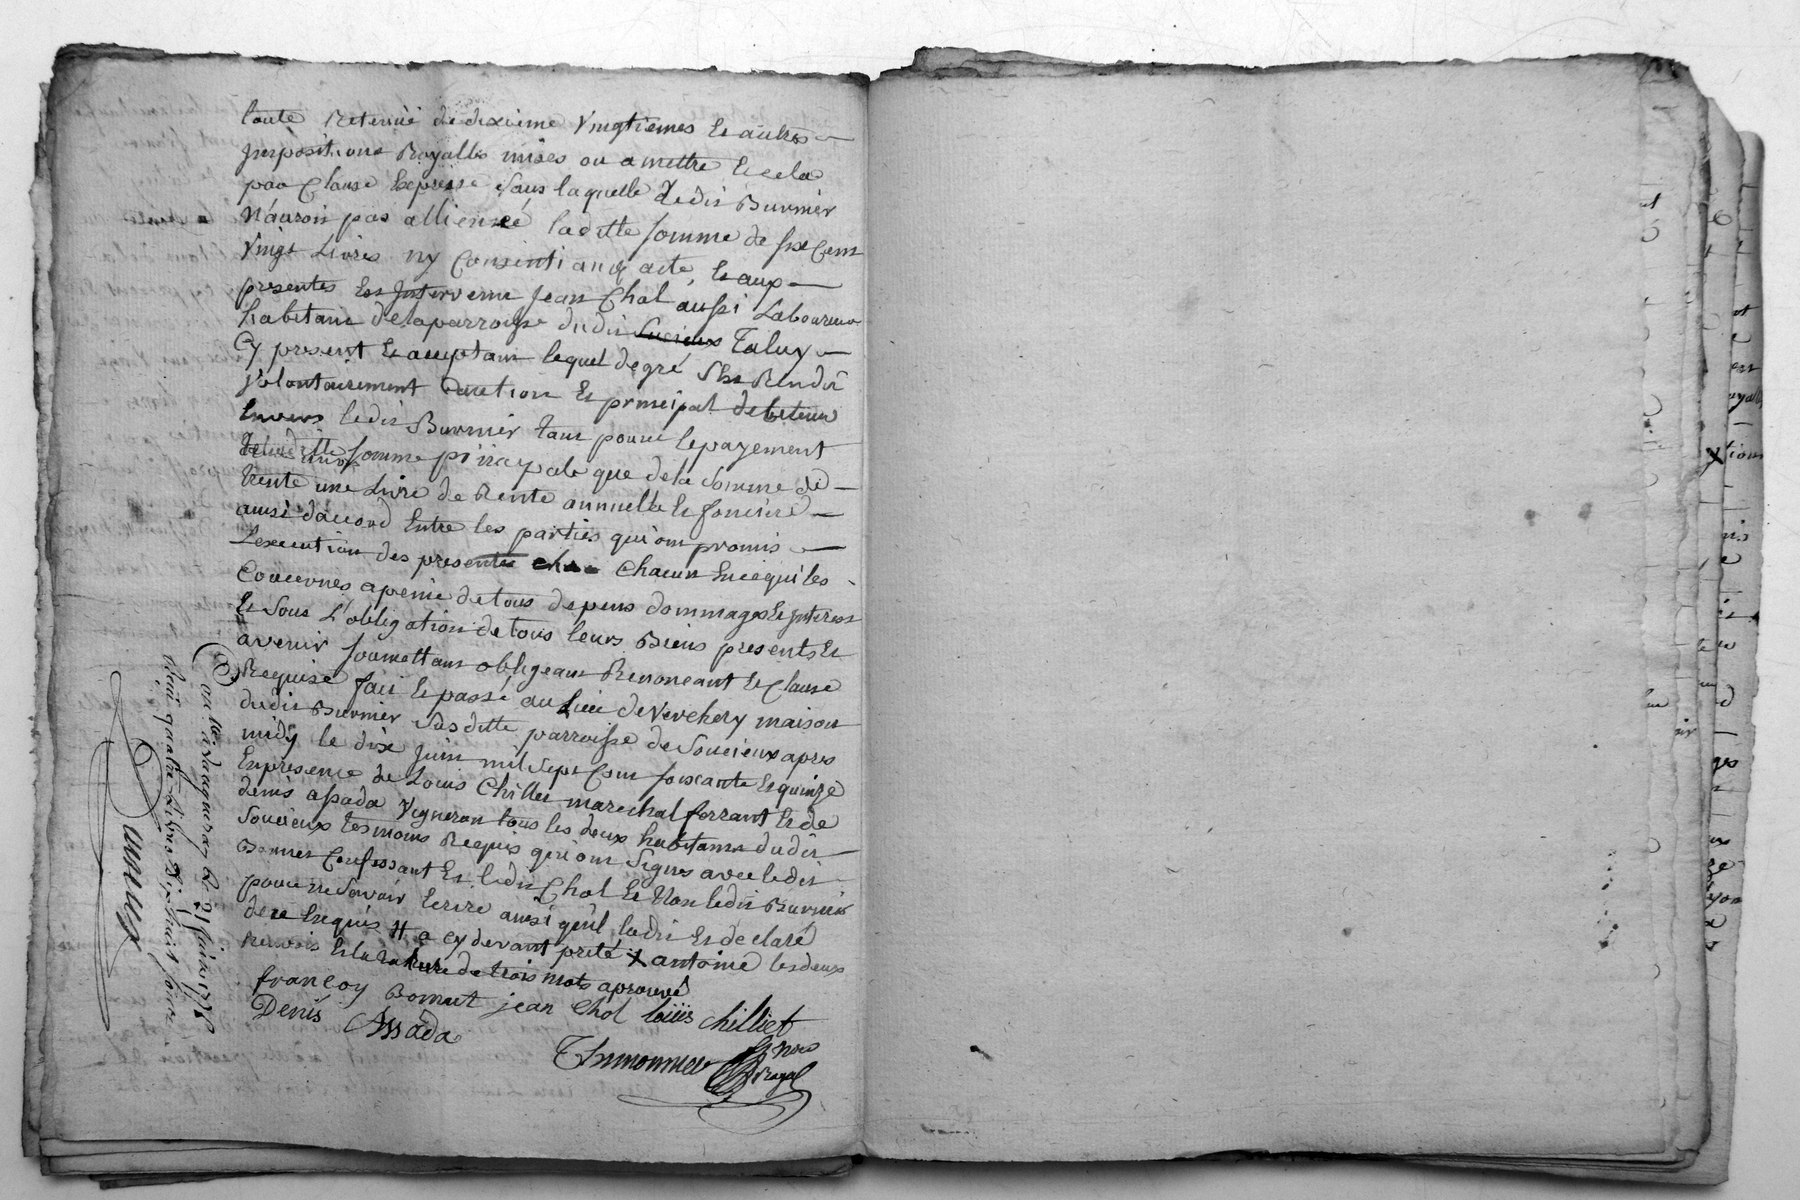 toute Retenüe de dixieme vingtiemes Et autres
Impositions Royalles mises ou a mettre Et cela
par Clause Expresse sans laquelle Ledit Burnier
N'auroit pas allienée laditte somme de six Cent
vingt Livres ny Consenti acte, Et aux
presentes Est Intervenu Jean Chol aussi Laboureur
habitant de la parroisse dudit Soucieux Taluy
Cy present Et acceptant lequel de gré s'Est Rendû
Volontairement caution Et principal debiteur
Envers ledit Burnier tant pour le payement
de laditte somme principale que de la somme de
trente une Livre de Rente annuelle Et fonciere
ainsi d'accord Entre les parties qui ont promis
L'execution des presentes cha Chacun En ce qui les
Concernes a peine de tous depens dommages Et Interest
Et Sous L'obligation de tous leurs Biens presents Et
avenir soumettant obligeant Renoncant Et Clause
Requise fait Et passé au Lieu de Verchery maison
dudit Burnier susditte parroisse de Soucieux apres
midy le dix Juin mil sept Cent soixante Et quinze
En presence de Louis Chillet marechal ferrant Et de
denis assada Vigneron tous les deux habitants dudit
Soucieux tesmoins Requis qui ont Signés avec ledit
Bonnet Confessant Et ledit Chol Et Non ledit Burnier
pour ne Savoir Ecrire ainsi qu'il la dit Et declaré
de ce Enquis # a cy devant preté X antoine les deux
renvois Et la rature de trois mots aprouvé
françoy Bonnet jean Chol louis chilliet
Denis Assada
Thimonnier
Nore
Royal
a Vaugneray le 21 Juin 1775
Reçu quatre Livres Dix huit sous